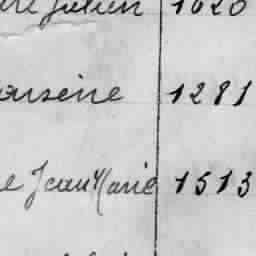 Julien 1620
arsène 1281
e Jean Marie 1513